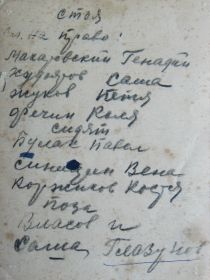 стоя
сл. на право:
Макаровский Генадий
Худояров Саша
Жуков Петя
Фрегин Коля
сидят
Булак Павел
Синицин Вена
Коржиков Костя
поза
Власов и
Саша Глазунов